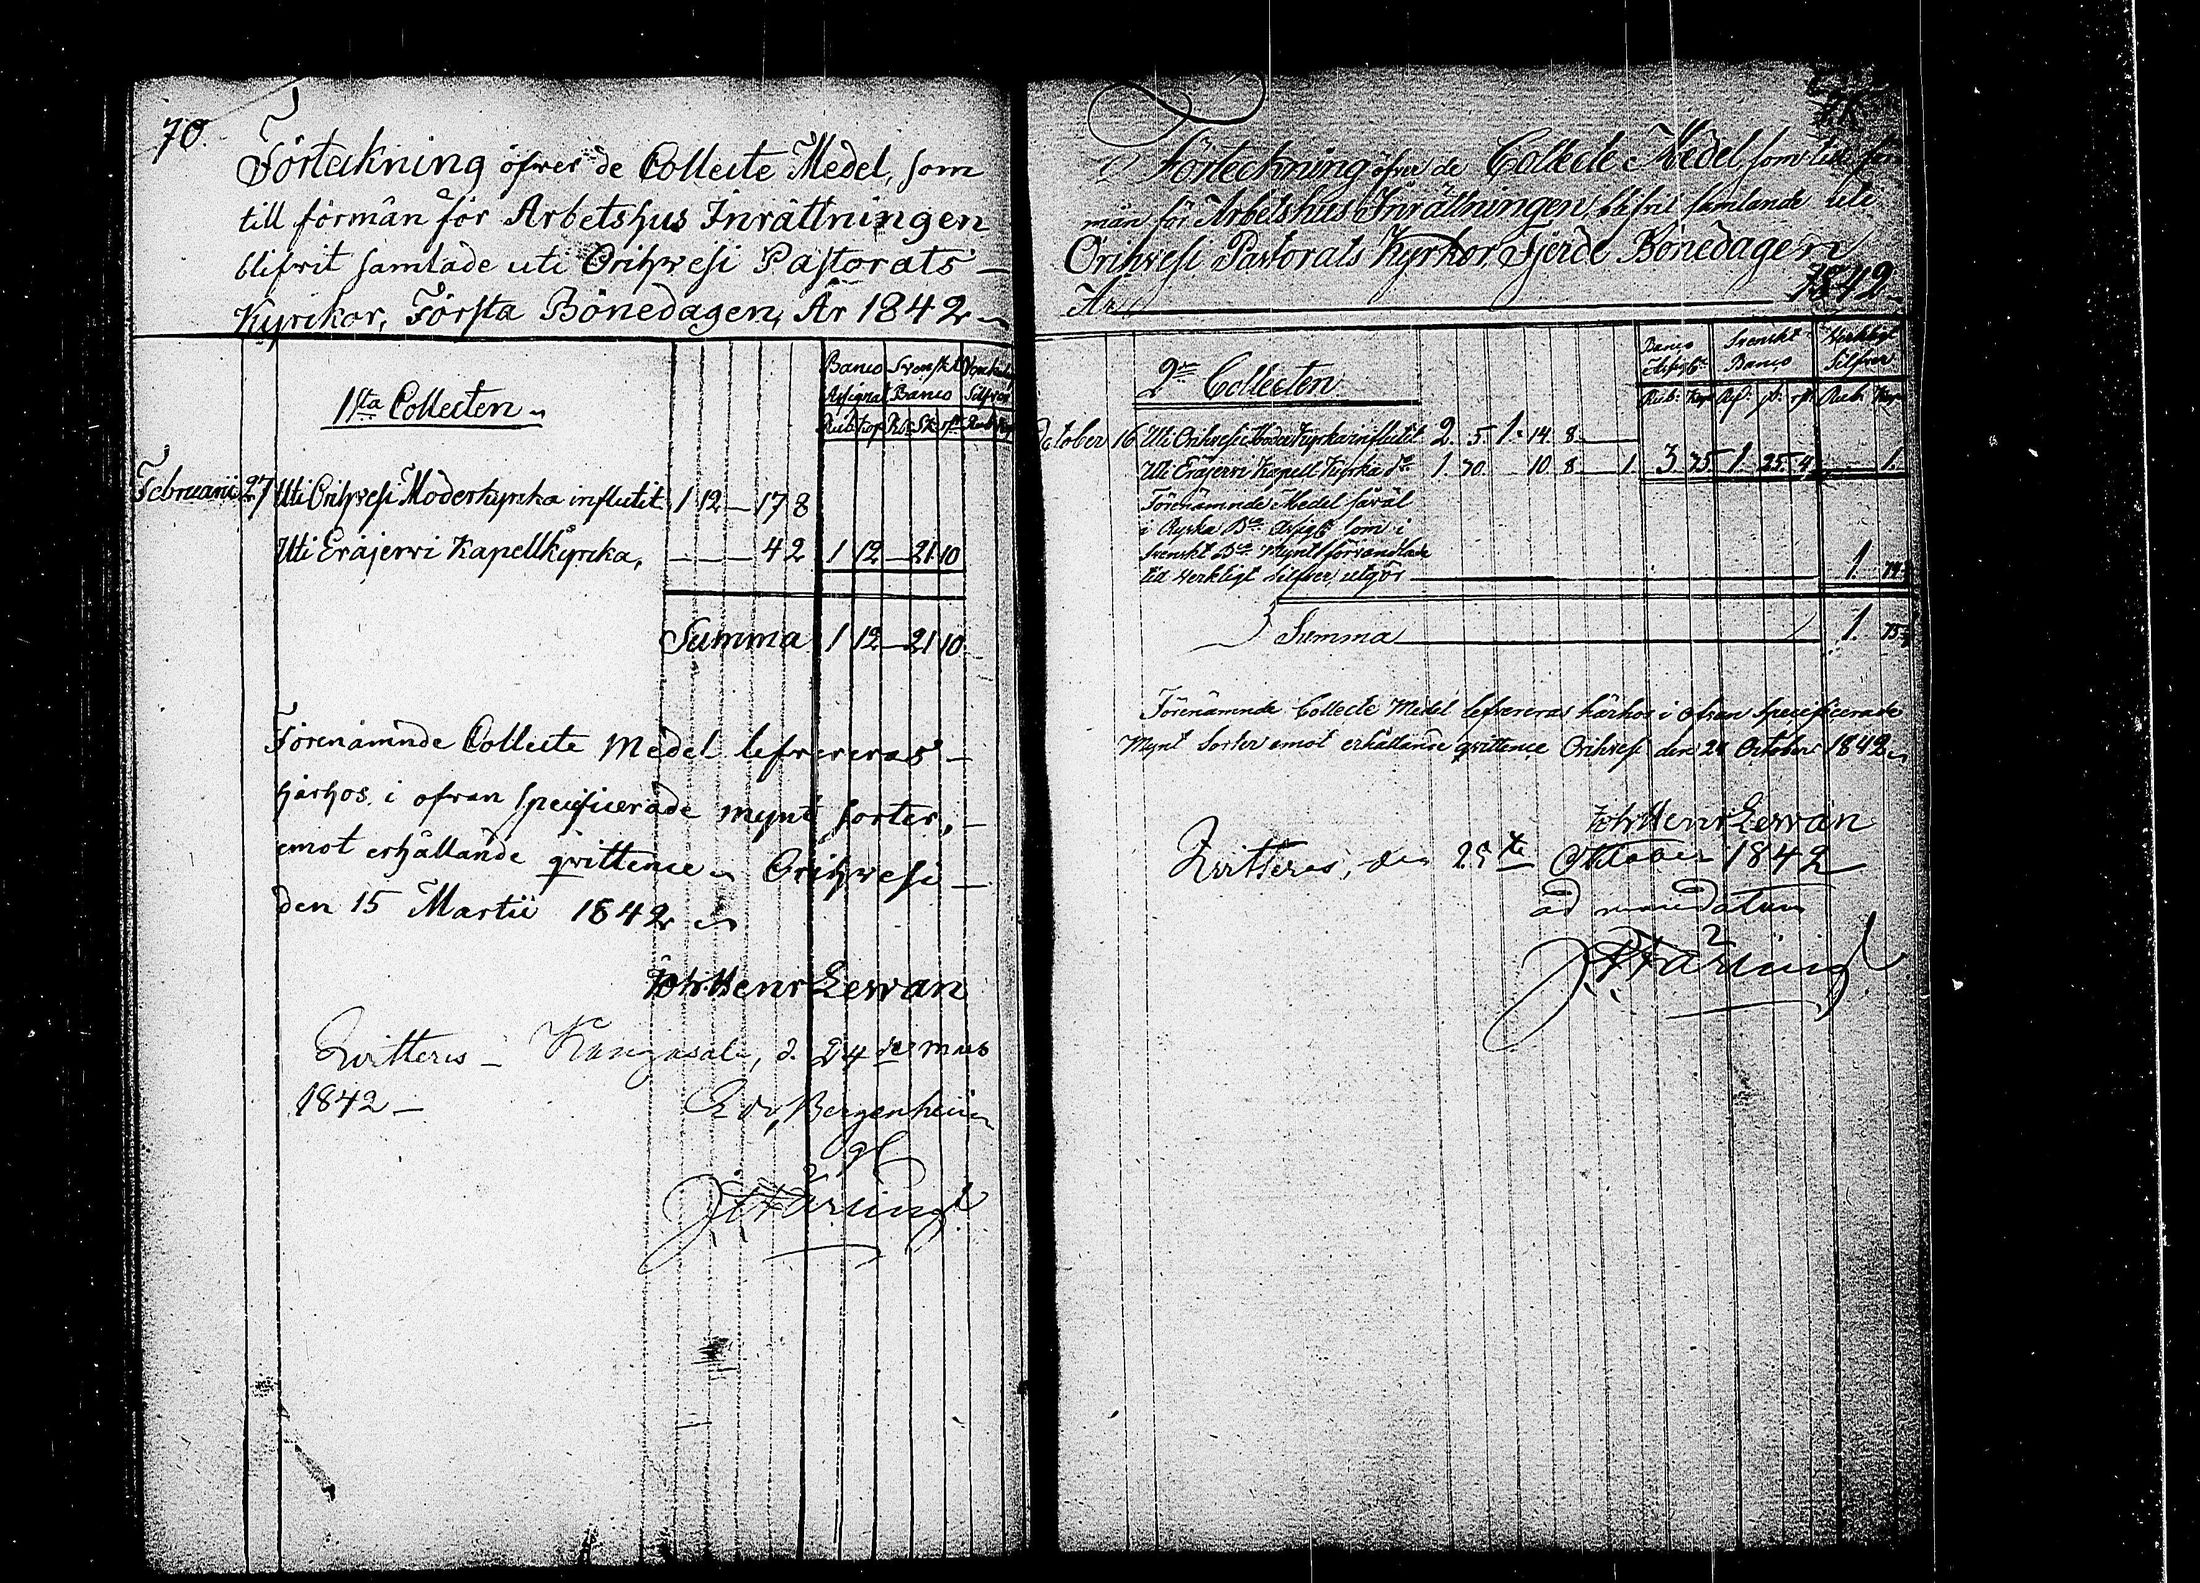 70.
Förteckning öfver de Collecte Medel, som
till förmån för Arbetshus Inrättningen
blifvit samlade uti Orihvesi Pastorats
Kyrkor, Första Bönedagen, År 1842
Banco Svenskt
Assignat Banco Silfver
Rub kop Rd Sk rst Rub
1sta Collecten
Februarii 27 Uti Orihvesi Moderkyrka influtit 1 12 – 17 8
Uti Eräjervi Kapellkyrka, – – – 4 2 1 12 – 21 10
Summa 1 12 – 21 10
Förenämnde Collecte Medel lefvereras
härhos i ofvan specificerade mynt sorter,
emot erhållande qvittence Orihvesi
den 15 Martii 1842
Joh Henr Levan
Qvitteras – Kangasala, d. 24de Mars
1842 –
Edv. Bergenheim
gl
Förteckning öfver de Collecte Medel, som till för
mån för Arbetshus Inrättningen, blifvit samlande uti
Orihvesi Pastorats Kyrkor Fjerde Bönedagen
År 1842
Banco Svenskt Verkligt
Assig Banco Silfver
Rub: Kop Rd: sk: rst: Rub: Kop
2dra Collecten
October 16 Uti Orihvesi Moder Kyrka influtit 2. 5. 1. 14. 8.
Uti Eräjervi Kapell Kyrka do 1. 70. 10. 8 – 1 3 75 1. 25. 4 1.
Förenämnde Medel såväl
i Ryska Bco Assig som i
Svenskt Bco Mynt förvandlade
till Verkligt Silfver, utgör 1. 74
Summa 1. 75
Förenämnde Collecte Medel lefvereras härhos i ofvan specificerade
Mynt sorter emot erhållande qvittence Orihvesi den 24 October 1842
Joh Henr Levan
Qvitteras, den 29de October 1842
ad mandatum